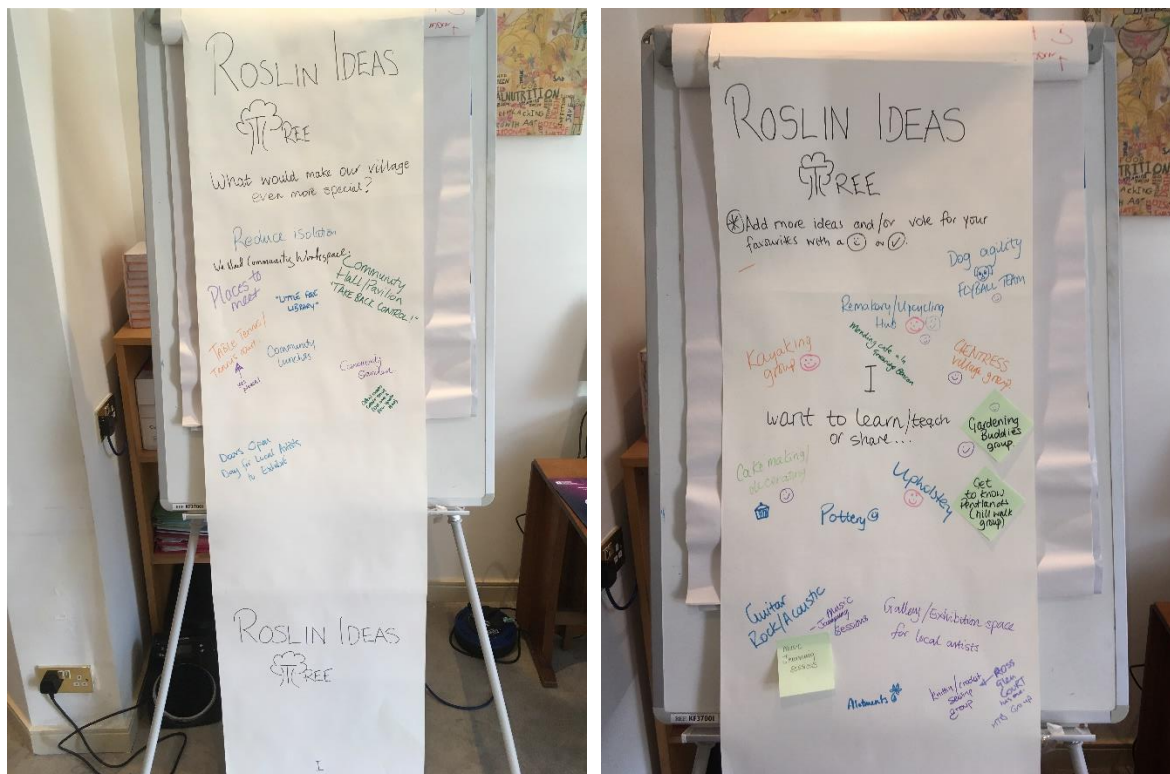 ROSLIN IDEAS
TREE
What would make our village
even more special?
Reduce isolation
Community Workspace
Places to
meet
"LITTLE FREE
LIBRARY"
Community
Hall/Pavilion
"TAKE BACK CONTROL!"
Table Tennis/
Tennis
Community
Lunches
Community
Garden
Doors Open
Day for Local Artists
to Exhibit
ROSLIN IDEAS
TREE
I
NUTRITION
REF: RF37001
ROSLIN IDEAS
TREE
Add more ideas and/or vote for your
favourites with a or
Dog agility
FLYBALL TEAM
Remakery/Upcycling
Hub
Mending cafe
Kayaking
group
GLENTRESS
village group
I
want to learn/teach
or share...
Gardening
Buddies
group
Cake making/
decorating
Upholstery
Get
to know
Pentlands
(hill walk
group)
Pottery
Guitar
Rock/Acoustic
Music
Jamming
Sessions
Gallery/Exhibition space
for local artists
Music
Jamming
sessions
Alotments
Knitting/crochet
sewing
group
ROSS
GLEN
COURT
group
REF: RF37001